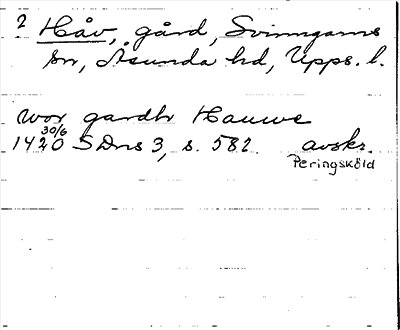 2 Håv, gård, Svinngarns
sn, Åsunda hd, Upps. l.
wor gardh Hauwe
30/6
1420 SDns 3, s. 582. avskr.
Peringsköld